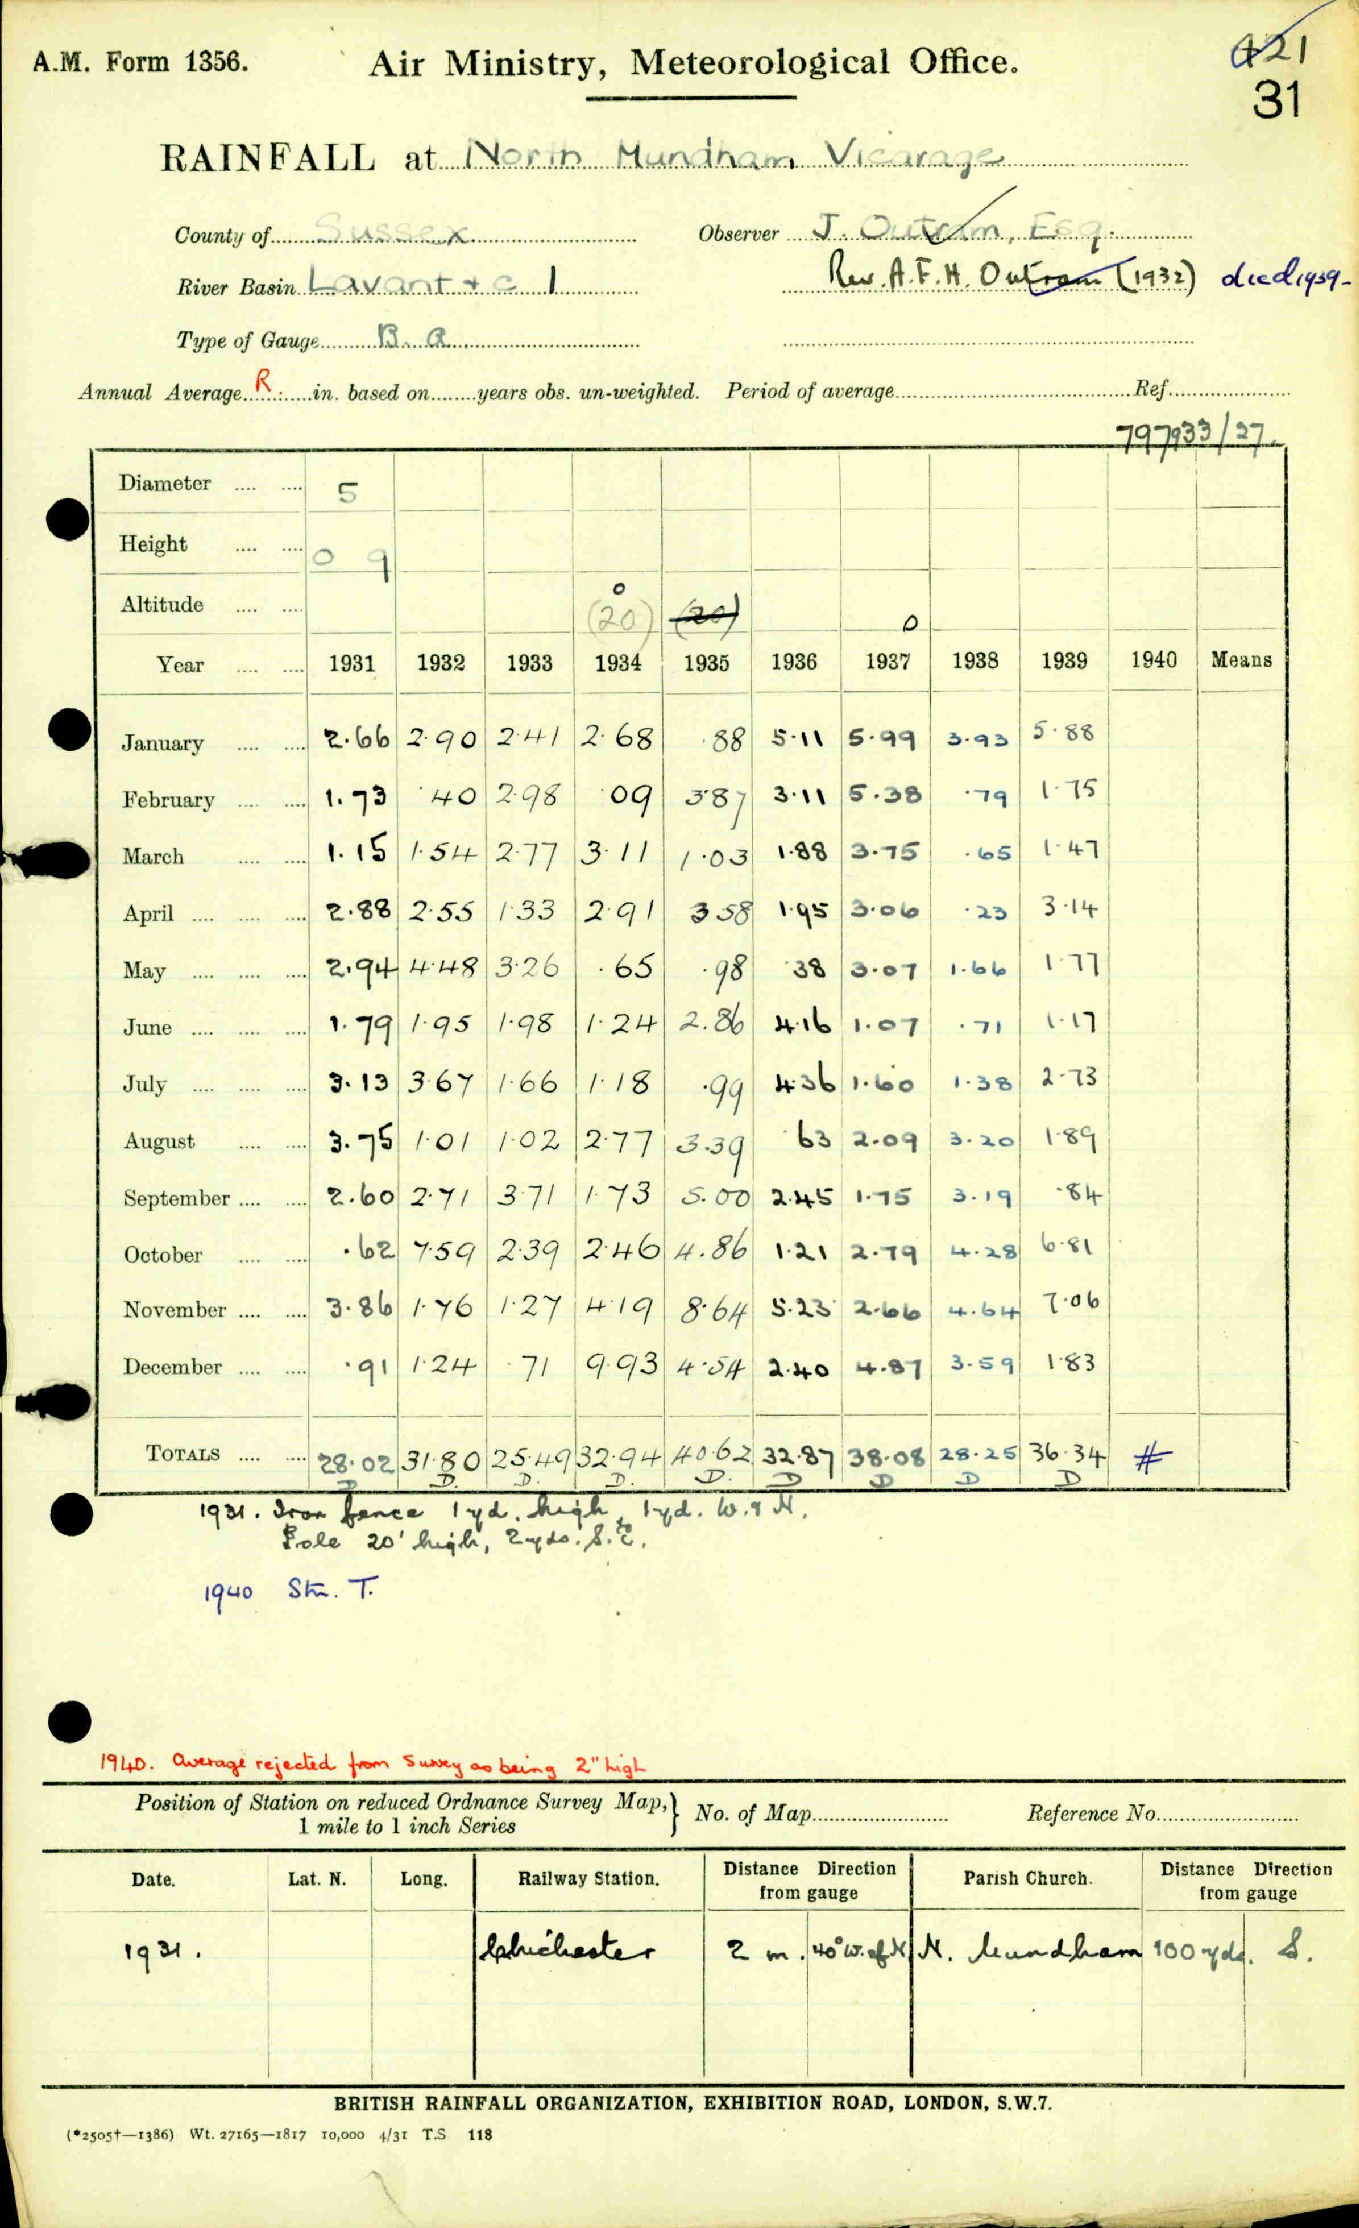 A.M. Form 1356. Air Ministry, Meteorological Office. 421
31
RAINFALL at North Mundham Vicarage
County of Sussex Observer J. Outram, Esq.
River Basin Lavant & c 1 Rev. A.F.H. Outram (1932) died 1939-
Type of Gauge B. R
Annual Average R. in. based on years obs. un-weighted. Period of average Ref.
797933/27.
Diameter 5
Height 0 9
Altitude (20) 0 (20) 0
Year 1931 1932 1933 1934 1935 1936 1937 1938 1939 1940 Means
January 2.66 2.90 2.41 2.68 .88 5.11 5.99 3.93 5.88
February 1.73 .40 2.98 .09 3.87 3.11 5.38 .79 1.75
March 1.15 1.54 2.77 3.11 1.03 1.88 3.75 .65 1.47
April 2.88 2.55 1.33 2.91 3.58 1.95 3.06 .23 3.14
May 2.94 4.48 3.26 .65 .98 .38 3.07 1.66 1.77
June 1.79 1.95 1.98 1.24 2.86 4.16 1.07 .71 1.17
July 3.13 3.67 1.66 1.18 .99 4.36 1.60 1.38 2.73
August 3.75 1.01 1.02 2.77 3.39 .63 2.09 3.20 1.89
September 2.60 2.71 3.71 1.73 5.00 2.45 1.75 3.19 .84
October .62 7.59 2.39 2.46 4.86 1.21 2.79 4.28 6.81
November 3.86 1.76 1.27 4.19 8.64 5.23 2.66 4.64 7.06
December .91 1.24 .71 9.93 4.54 2.40 4.87 3.59 1.83
TOTALS 28.02 31.80 25.49 32.94 40.62 32.87 38.08 28.25 36.34 #
D D. D. D. D. D D D D
1931. Iron fence 1 yd. high, 1 yd. W. & N.
Pole 20' high, 2 yds. S. to E.
1940 Stn. T.
1940. Average rejected from Survey as being 2" high
Position of Station on reduced Ordnance Survey Map, } No. of Map Reference No.
1 mile to 1 inch Series
Date. Lat. N. Long. Railway Station. Distance Direction from gauge Parish Church. Distance Direction from gauge
1931. Chichester 2 m. 40° W. of N N. Mundham 100 yds. S.
BRITISH RAINFALL ORGANIZATION, EXHIBITION ROAD, LONDON, S.W.7.
(*2505†—1386) Wt. 27165—1817 10,000 4/31 T.S 118